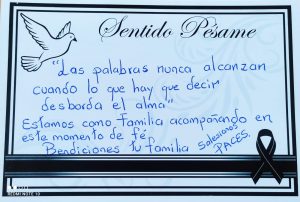 Sentido Pésame
"Las palabras nunca alcanzan
cuando lo que hay que decir
desborda el alma"
Estamos como familia acompañando en
este momento de fé.
Bendiciones tu familia
Salesianos
PACES.
REDMI NOTE 10